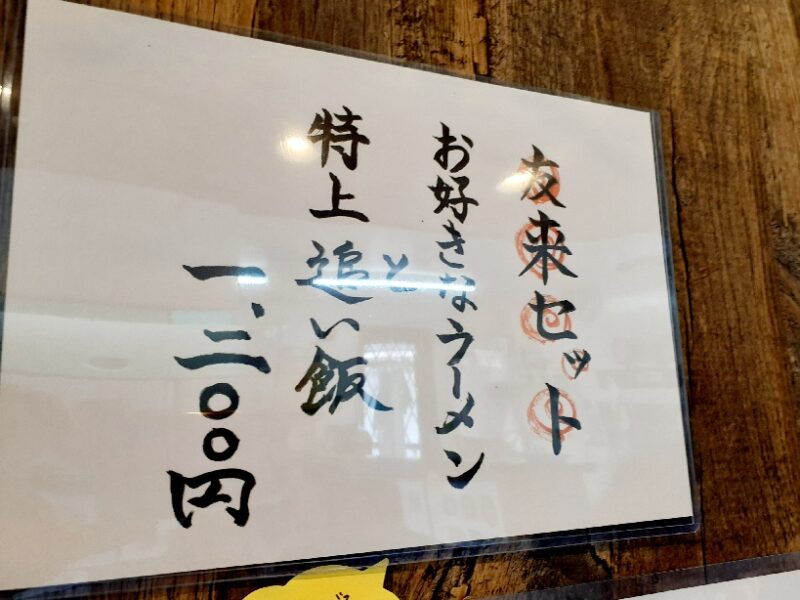 友来セット
お好きなラーメン
と
特上追い飯
一、二〇〇円